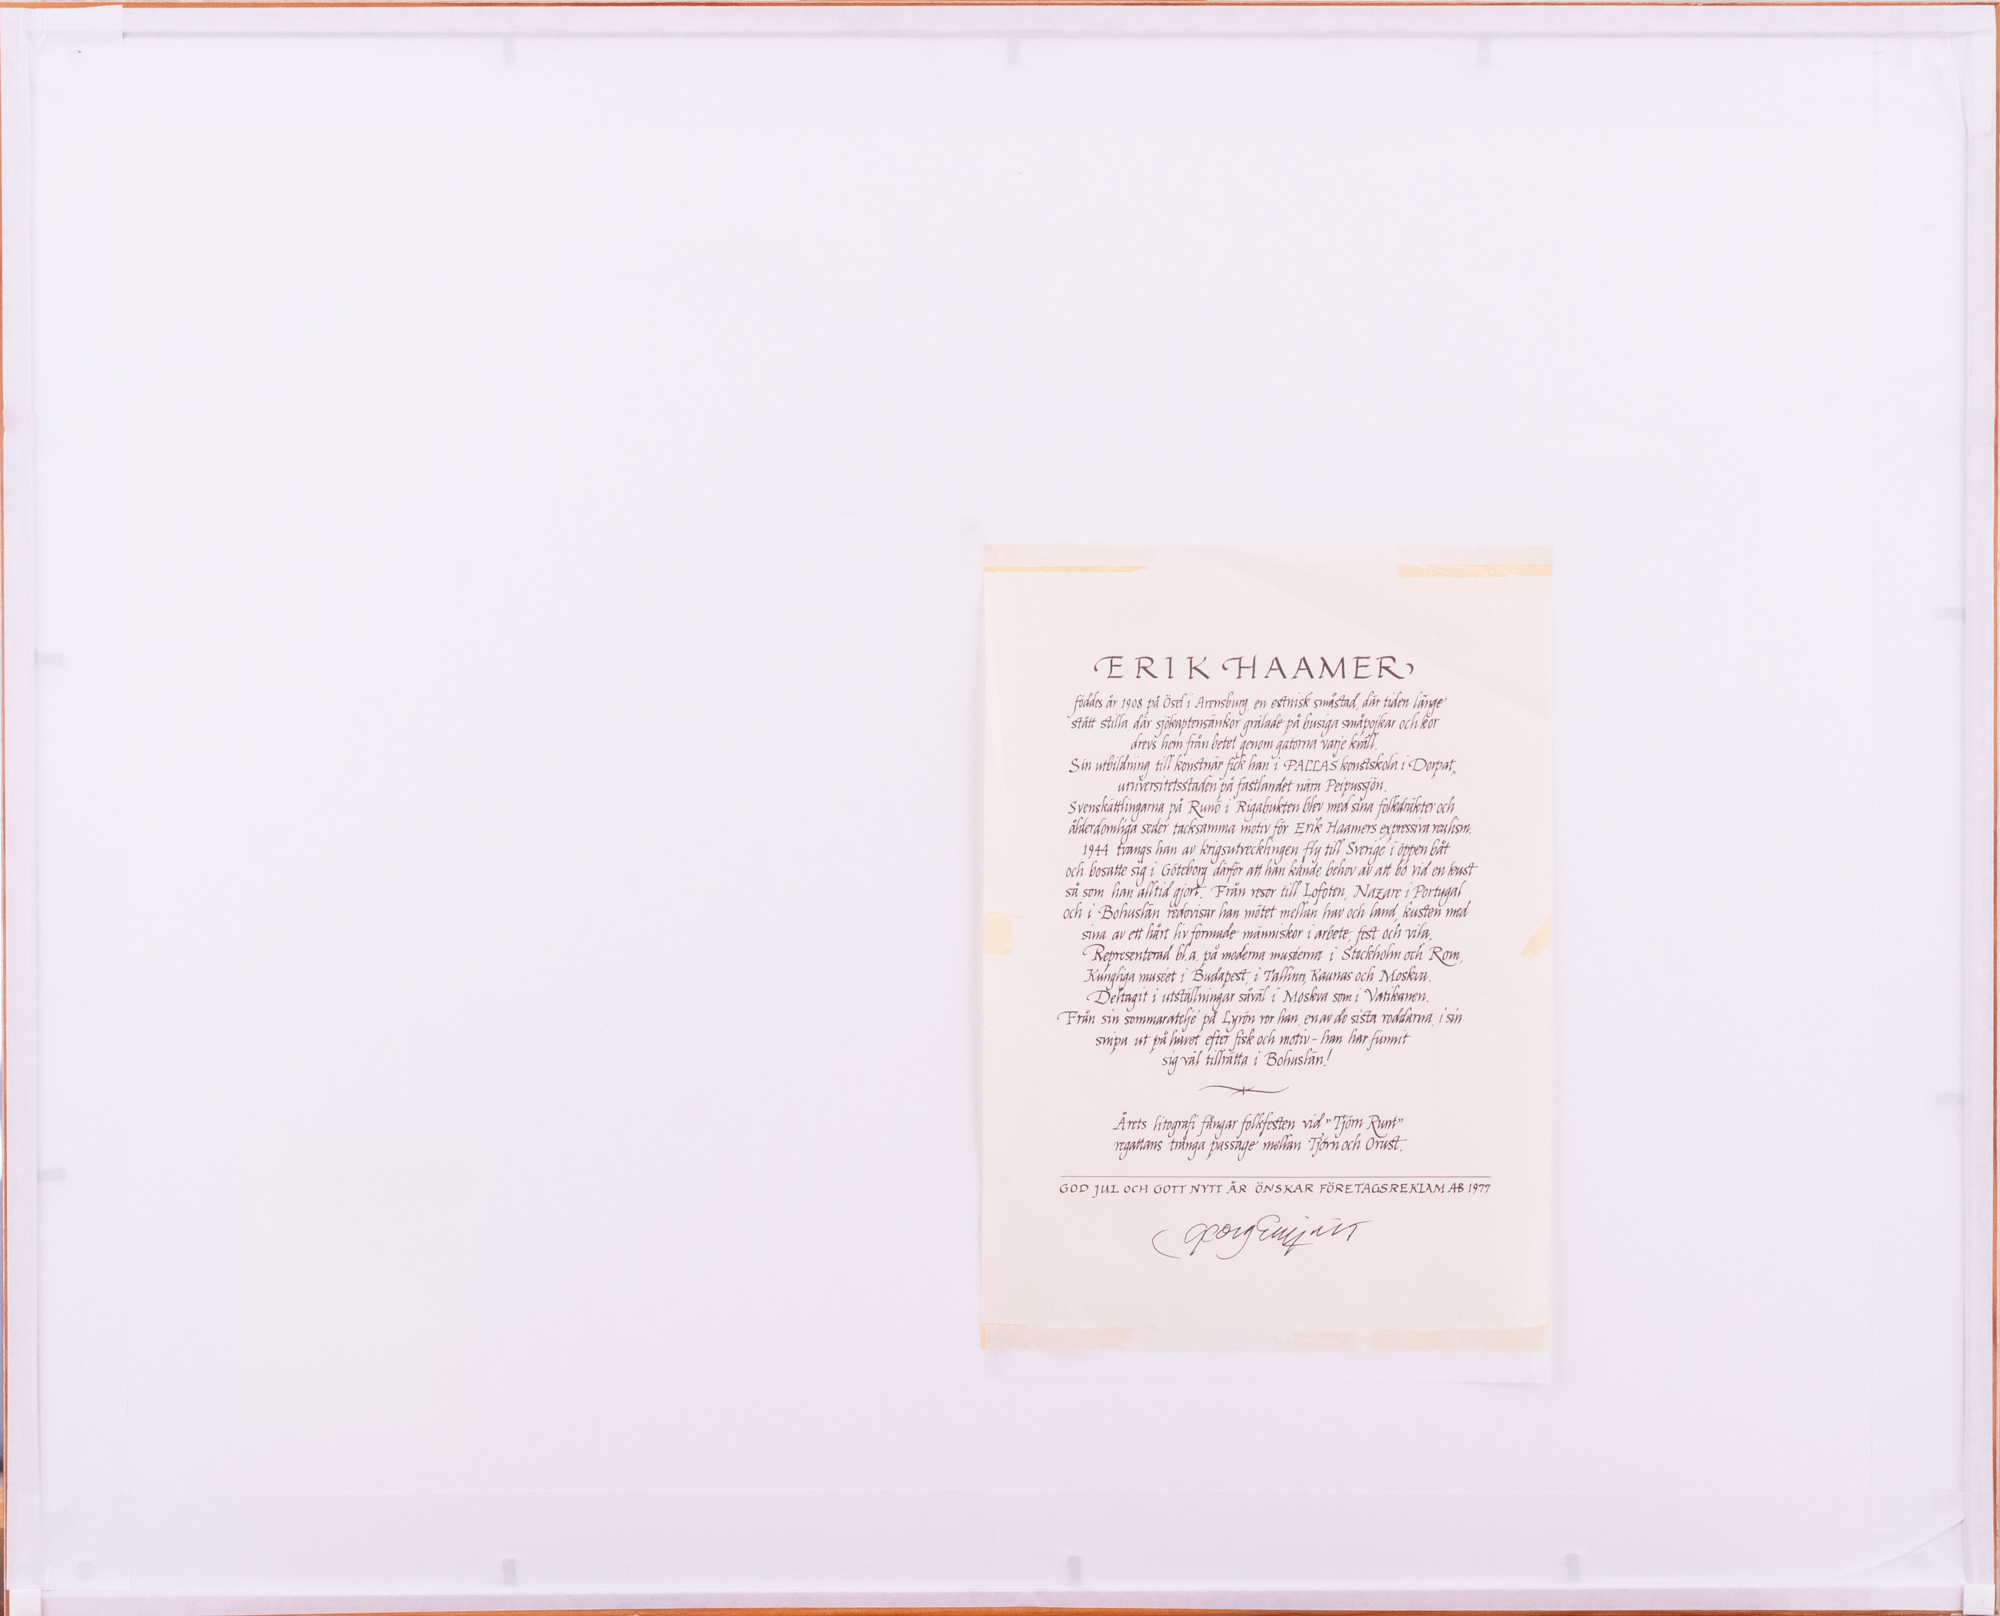 ERIK HAAMER
föddes år 1908 på Ösel i Arensburg, en estnisk småstad, där tiden länge
stått stilla, där sjökaptensänkor grälade på busiga småpojkar och kor
drevs hem från betet genom gatorna varje kväll.
Sin utbildning till konstnär fick han i PALLAS konstskola i Dorpat,
universitetsstaden på fastlandet nära Peipussjön.
Svenskättlingarna på Runö i Rigabukten blev med sina folkdräkter och
ålderdomliga seder tacksamma motiv för Erik Haamers expressiva realism.
1944 tvangs han av krigsutvecklingen fly till Sverige i öppen båt
och bosatte sig i Göteborg därför att han kände behov av att bo vid en kust
så som han alltid gjort. Från resor till Lofoten, Nazare i Portugal
och i Bohuslän redovisar han mötet mellan hav och land, kusten med
sina av ett hårt liv formade människor i arbete, fest och vila.
Representerad bl.a. på moderna muséerna i Stockholm och Rom,
Kungliga muséet i Budapest, i Tallinn, Kaunas och Moskva.
Deltagit i utställningar såväl i Moskva som i Vatikanen.
Från sin sommarateljé på Lyrön ror han, en av de sista roddarna, i sin
snipa ut på havet efter fisk och motiv – han har funnit
sig väl tillrätta i Bohuslän!
Årets litografi fångar folkfesten vid "Tjörn Runt"
regattans trånga passage mellan Tjörn och Orust.
GOD JUL OCH GOTT NYTT ÅR ÖNSKAR FÖRETAGSREKLAM AB 1977
Georg